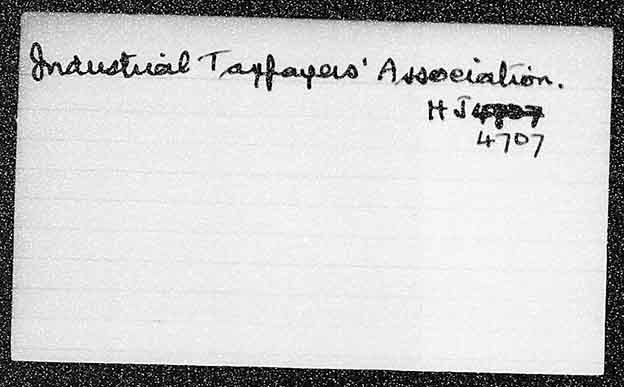 Industrial Taxpayers' Association.
HJ
4707